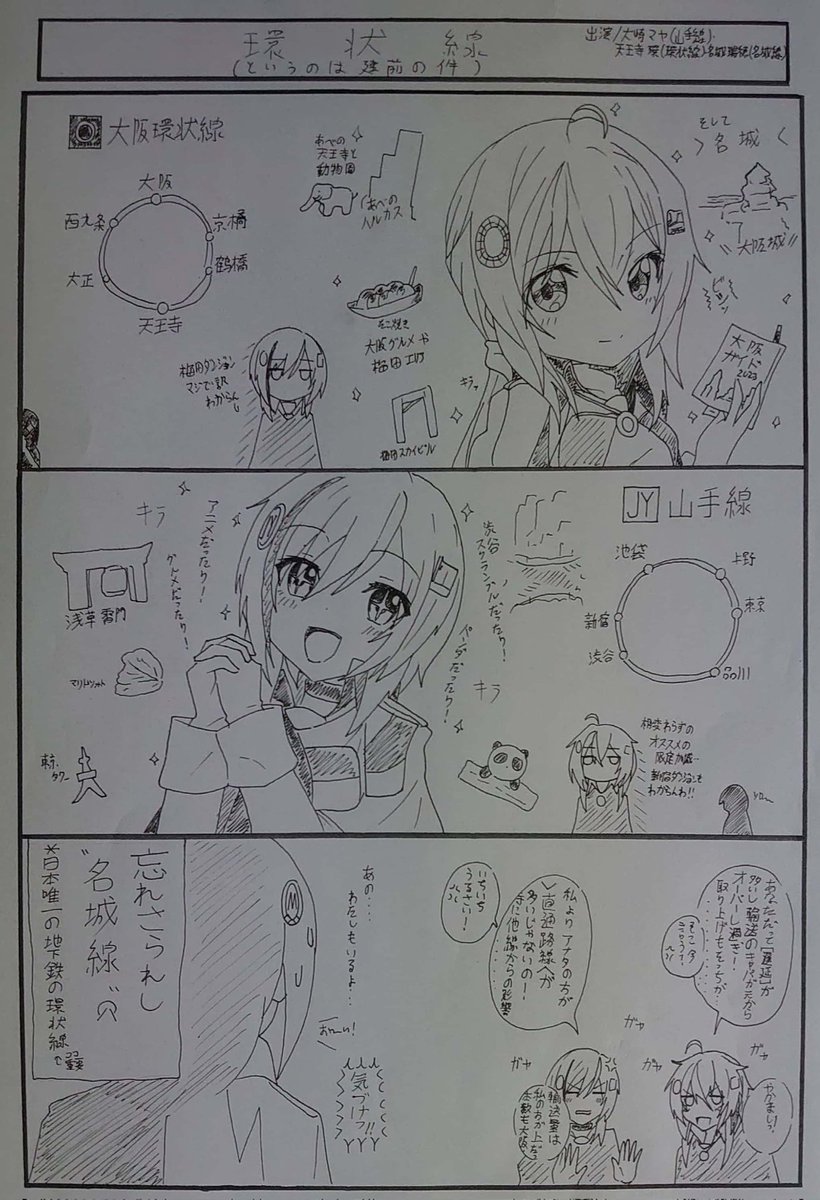 環状線
(というのは建前の件)
出演/大崎マヤ(山手線)
天王寺 環(環状線)名城瑞穂(名城線)
大阪環状線
大阪
京橋
鶴橋
天王寺
大正
西九条
あべの
天王寺と
動物園
あべの
ハルカス
たこ焼き
大阪グルメや
梅田スカイビル
梅田ダンジョン
マジで訳
わからん
キラッ
そして
名城
大阪城
大阪
ガイド
2023
JY 山手線
池袋
上野
東京
品川
渋谷
新宿
渋谷
スクランブルだったり!
パンダだったり!
キラ
アニメだったり!
グルメだったり!
キラ
浅草雷門
マリトッツォ
東京
タワー
相変わらずの
オススメの
限定加減…
新宿ダンジョンも
わからんわ!!
あなただって「遅延」が
多いし輸送のキャパが元から
オーバーし過ぎ!
取り上げもそっちが…
やかましい!
ガヤ
ガヤ
ガヤ
ガヤ
私よりアナタの方が
直通路線が
多いじゃないの!
いちいち
うるさい!
輸送量は
私の方が上だっ
本数も大阪
あの…
わたしもいるよ…
おーい!
気づけっ!!
忘れさられし
"名城線"
*日本唯一の地下鉄の環状線
↑ココ重要